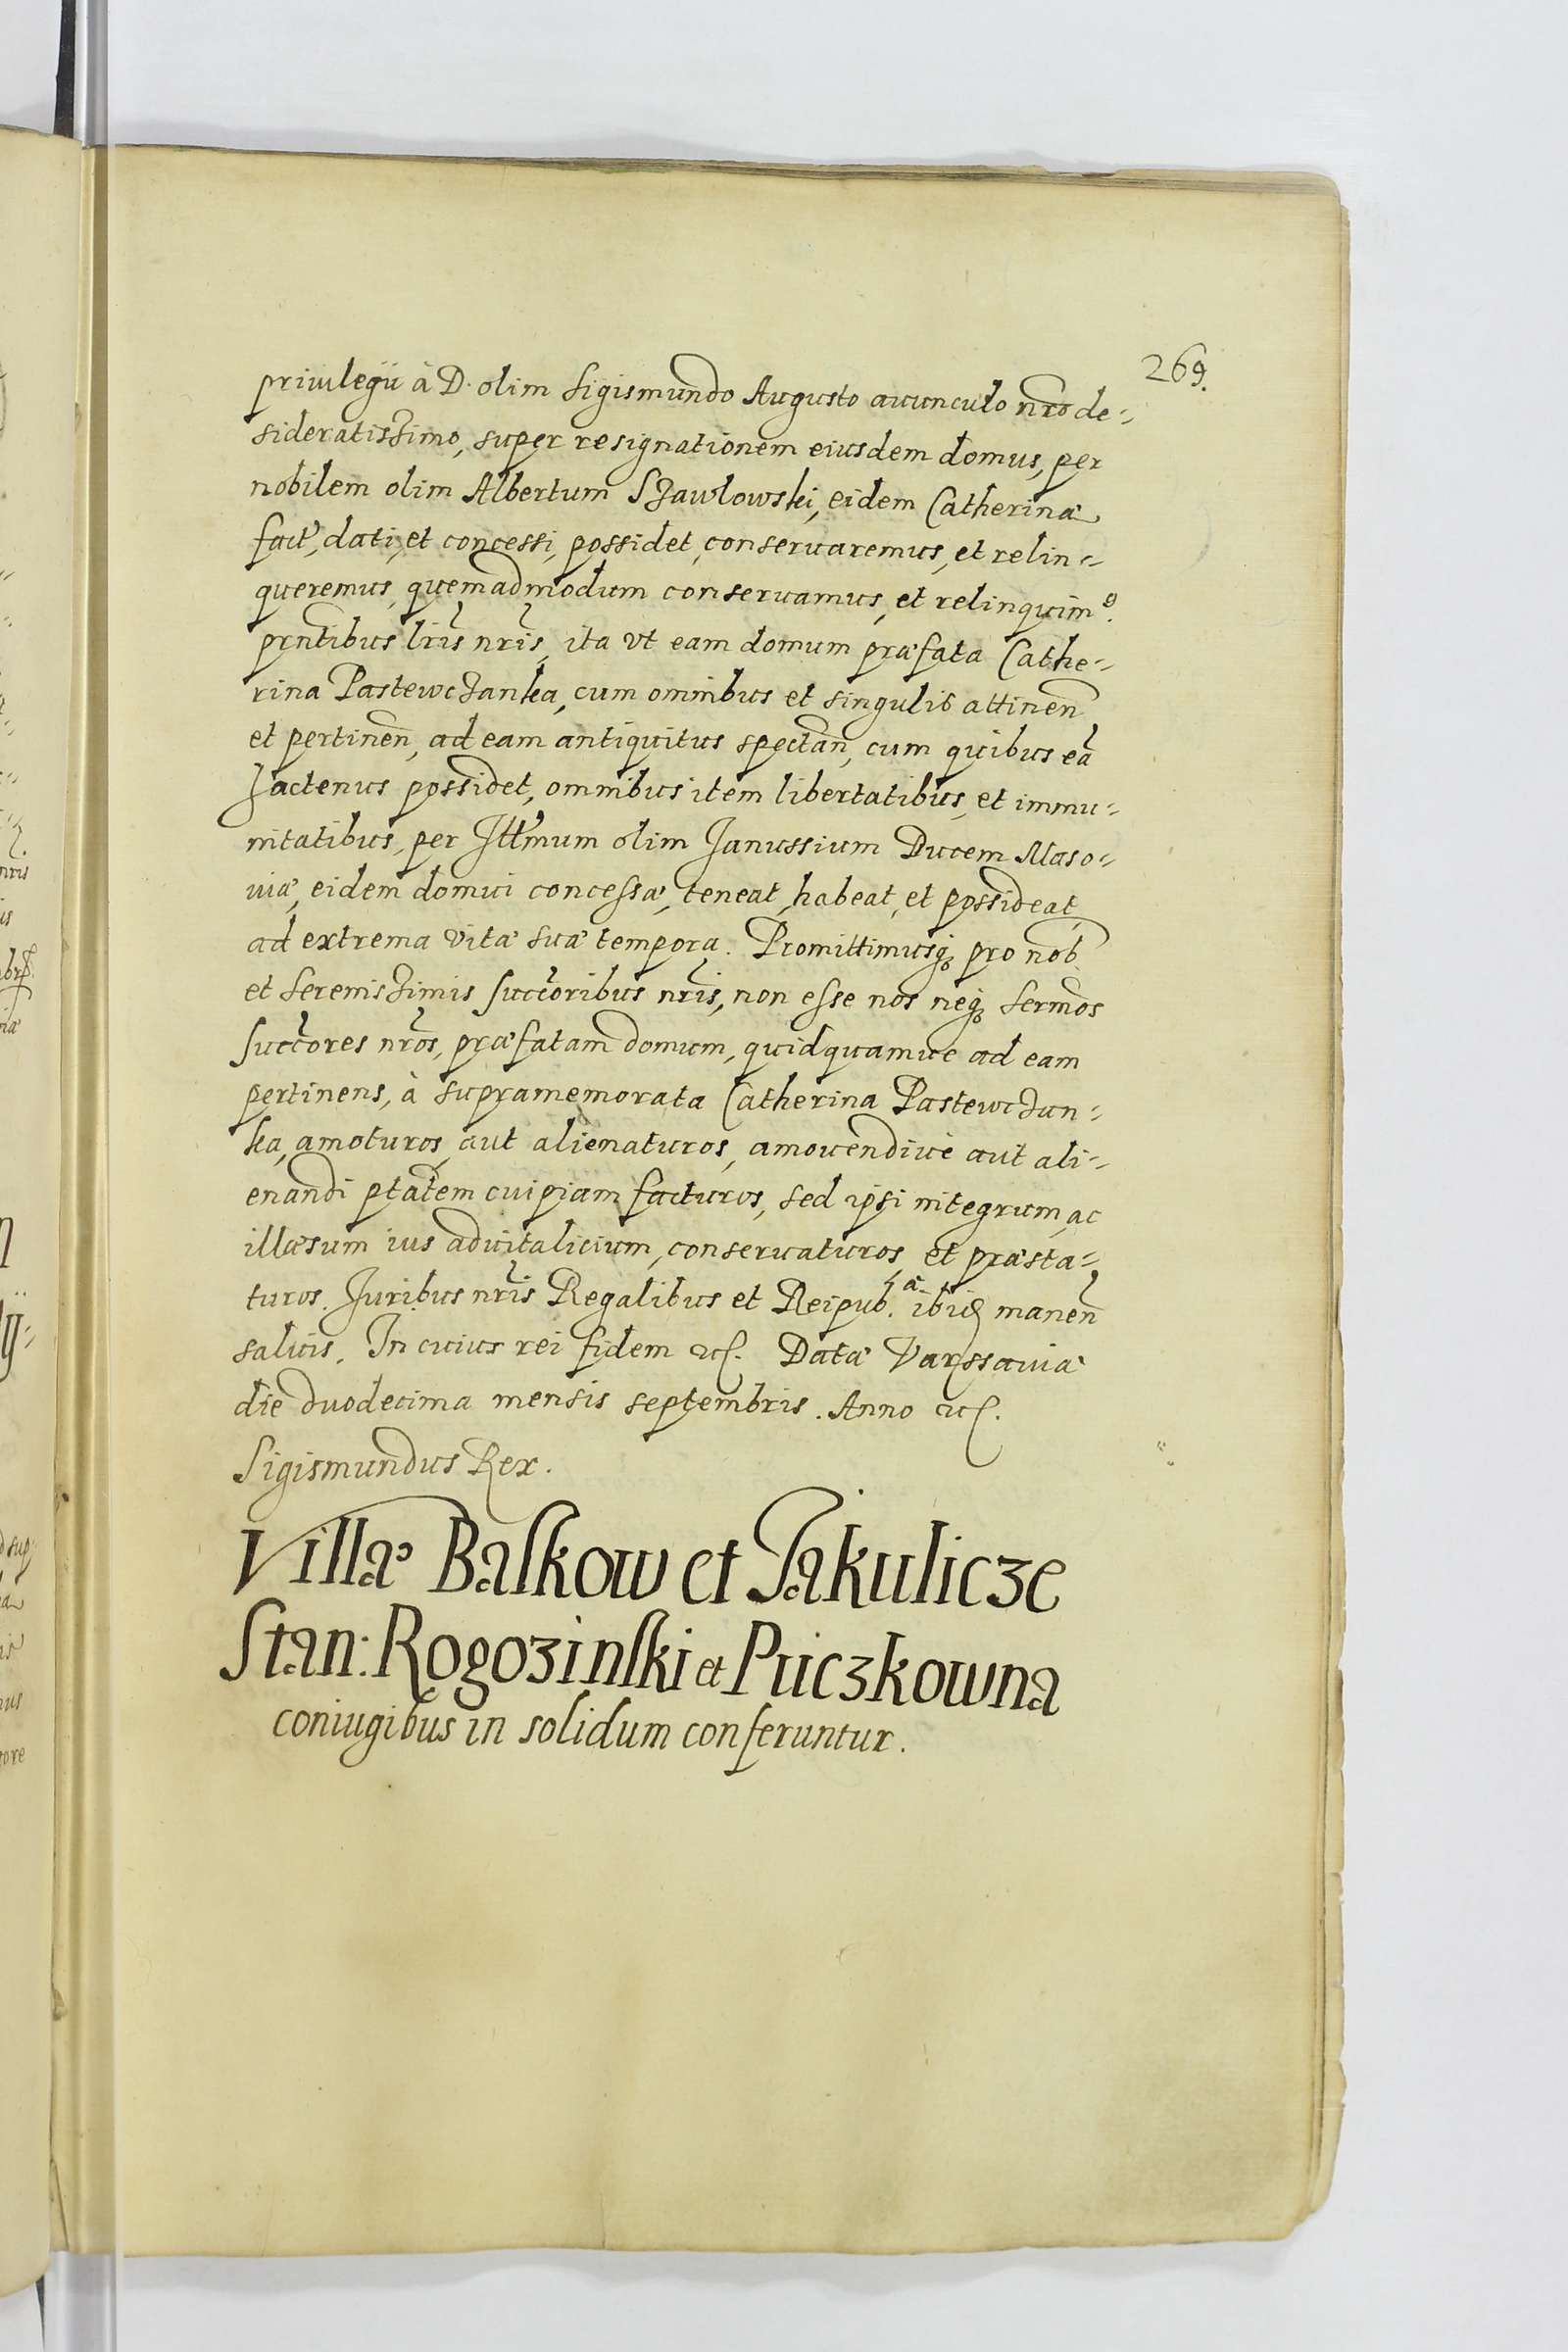 269.
priuilegii à D. olim Sigismundo Augusto auunculo nr̃o de=
sideratissimo, super resignationem eiusdem domus, per
nobilem olim Albertum Szawlowski, eidem Catherinæ
fact̃, dati, et concessi, possidet, conseruaremus, et relin=
queremus, quemadmodum conseruamus, et relinquim9.
pñtibus lr̃is nr̃is, ita vt eam domum præfata Cathe=
rina Pastewczanka, cum omnibus et singulis attineñ
et pertineñ, ad eam antiquitus spectañ, cum quibus eã
hactenus possidet, omnibus item libertatibus, et immu=
nitatibus, per Illm̃um olim Janussium Ducem Maso=
uiæ, eidem domui concessæ, teneat, habeat, et possideat,
ad extrema vitæ suæ tempora. Promittimusq; pro nob̃
et Serenissimis succ̃oribus nr̃is, non esse nos neq; Serm̃os
succ̃ores nr̃os, præfatam domum, quidquamue ad eam
pertinens, à supramemorata Catherina Pastewczan=
ka, amoturos, aut alienaturos, amouendiuè aut ali=
enandi ptat̃em cuipiam facturos, sed ipsi integrum, ac
illæsum ius aduitalicium, conseruaturos, et præsta=
turos. Juribus nr̃is Regalibus et Reipub.æ ibid manen̄
saluis. In cuius rei fidem etc. Datæ Varssauiæ
die duodecima mensis septembris. Anno etc.
Sigismundus Rex.
Villæ Balkow et Jakulicze
Stan: Rogozinski et Puczkowna
coniugibus in solidum conferuntur.